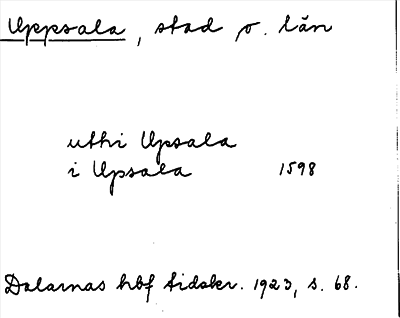 Uppsala, stad o. län
uthi Upsala
i Upsala 1598
Dalarnas hbf tidskr. 1923, s. 68.